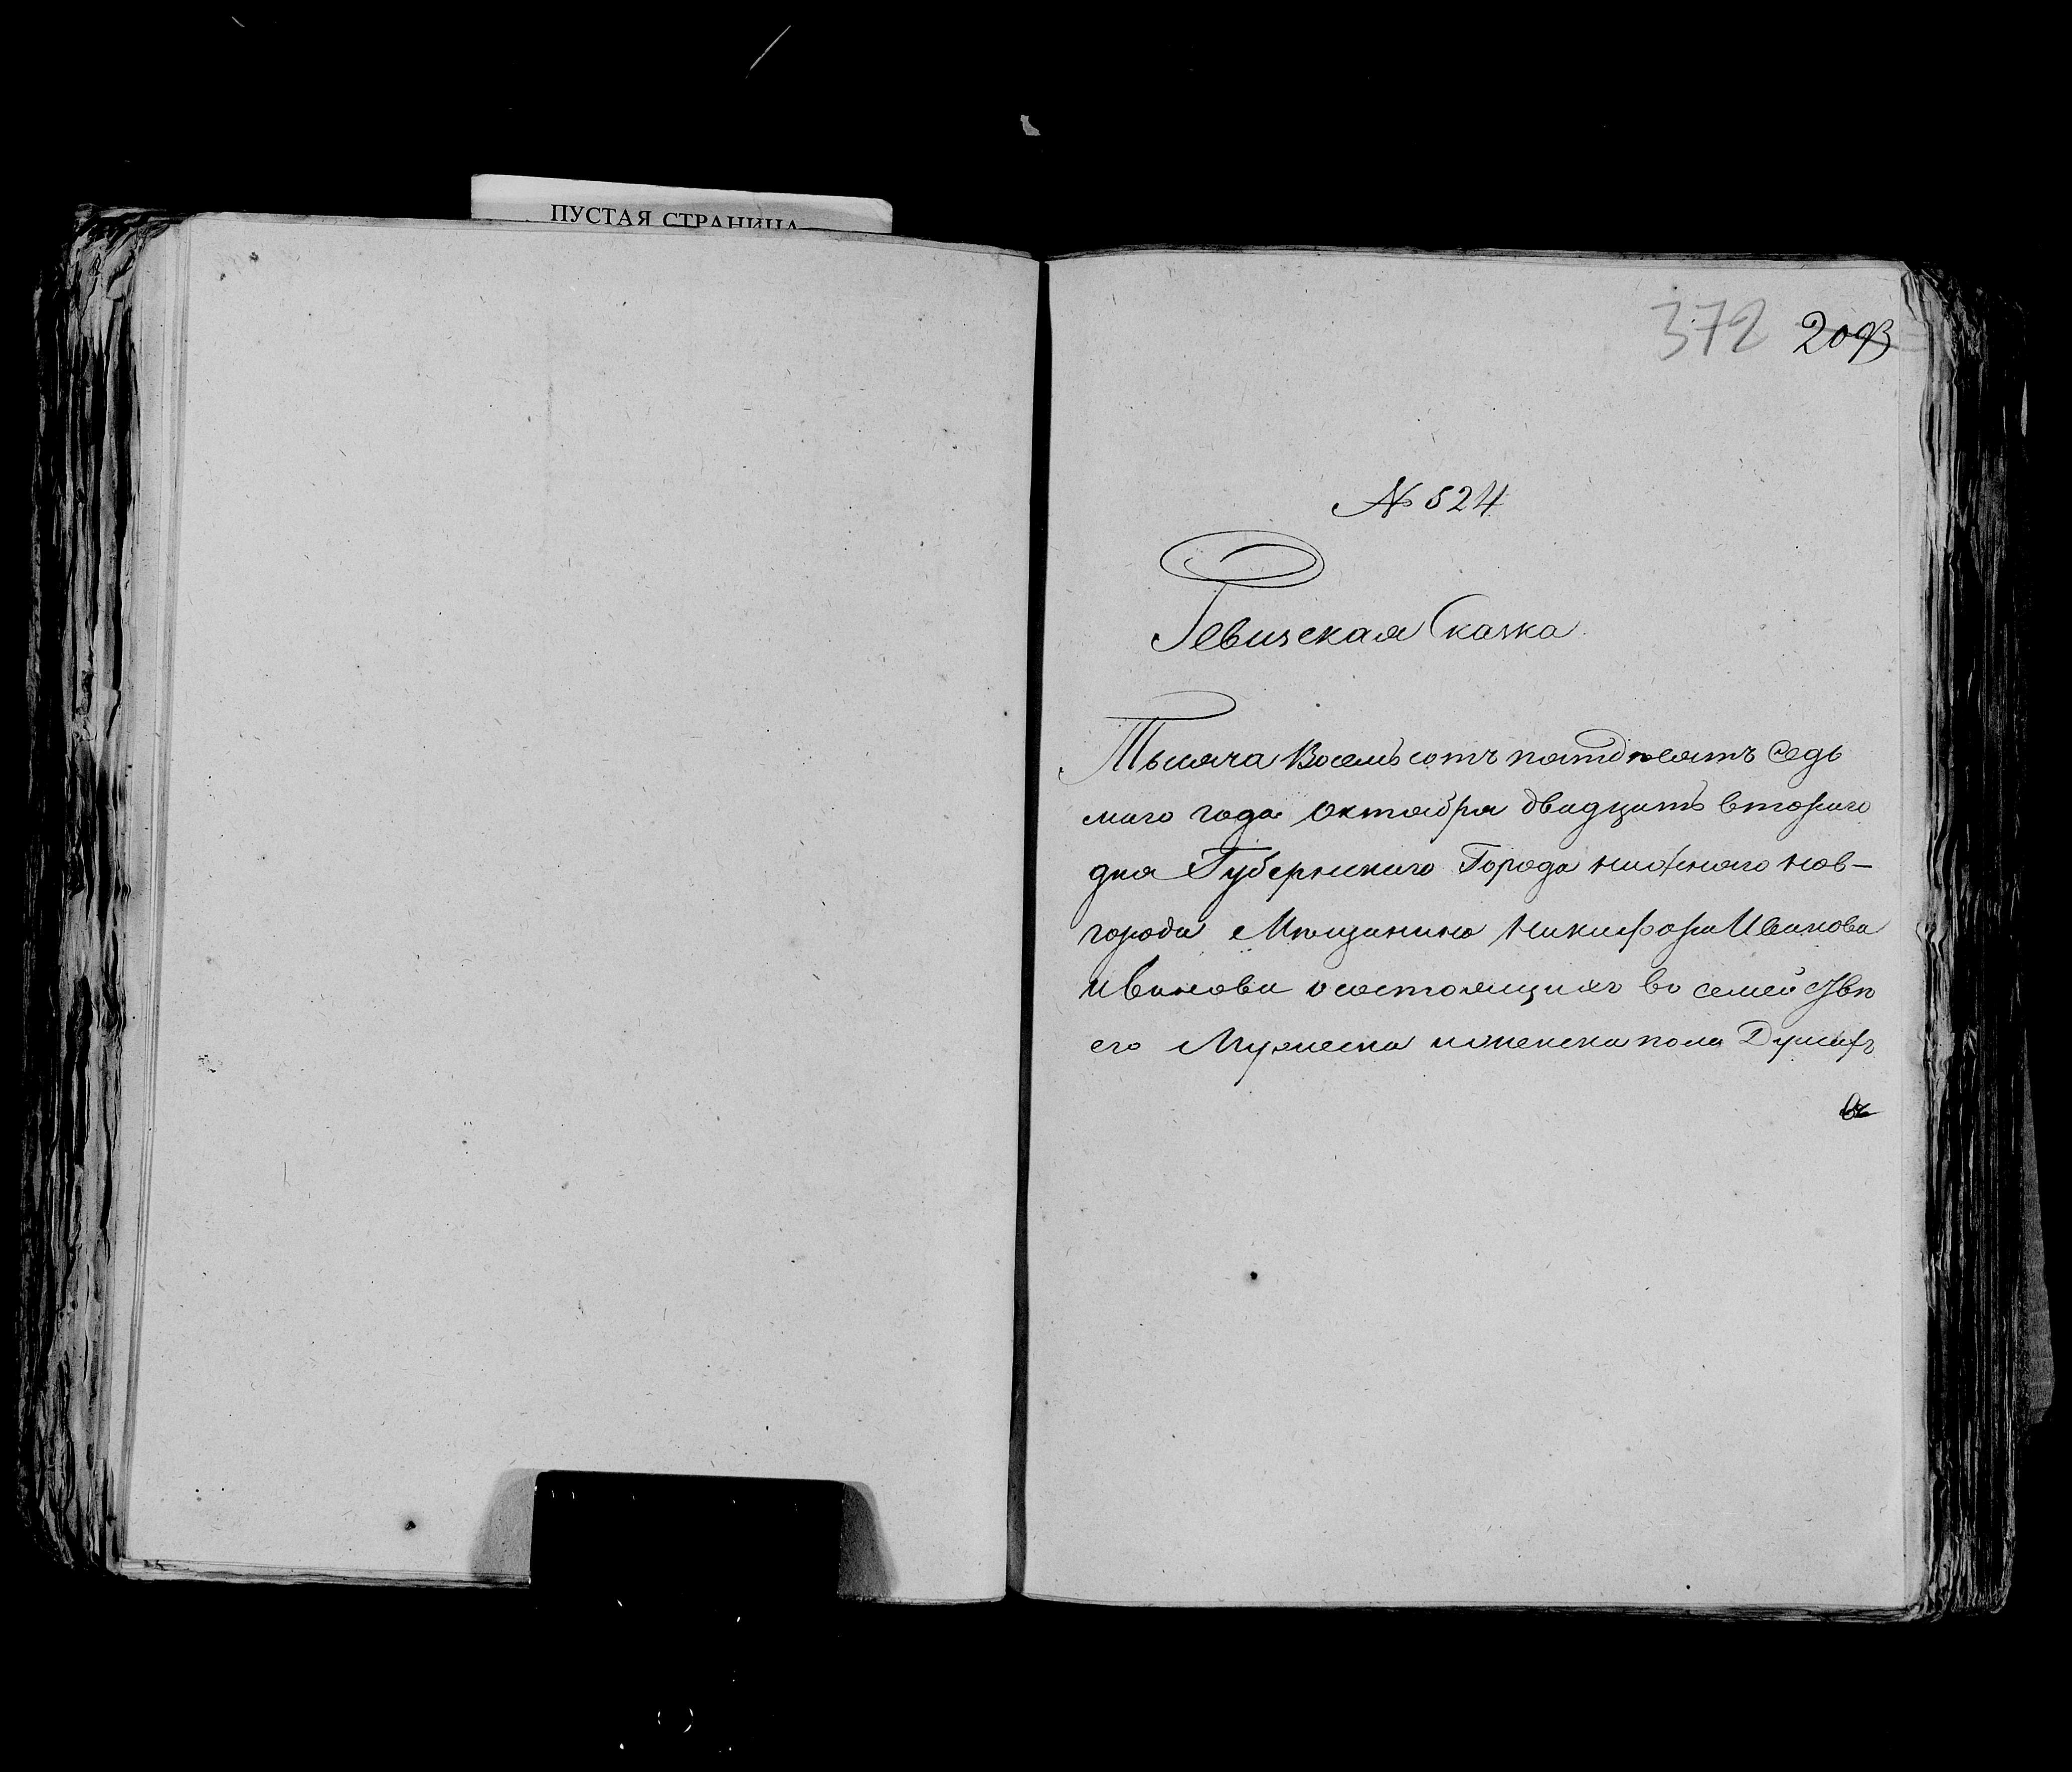 ПУСТАЯ СТРАНИЦА
372 2093
№ 524
Ревизская Сказка
Тысяча Восемьсотъ пятдѣсятъ Седь
маго года Октября двадцать втораго
дня Губернскаго Города нижняго нов-
города Мѣщанина Никифора Иванова
Иванова осостоящихъ во семействѣ
его Мужеска иженска пола Душахъ